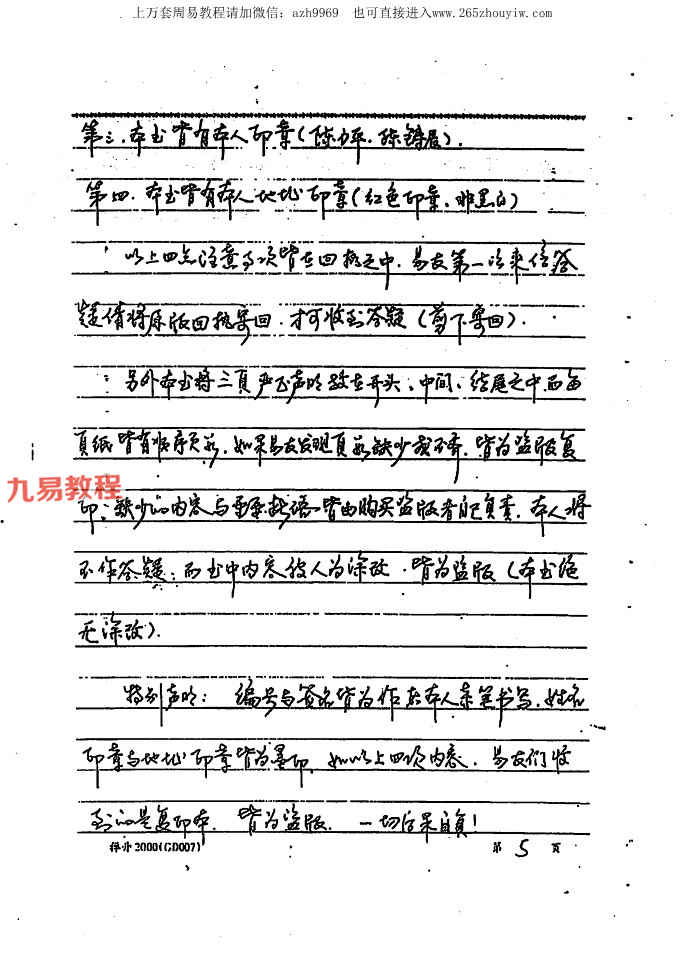 上万套周易教程请加微信：azh9969　也可直接进入www.265zhouyiw.com
第三.本书皆有本人印章(陈力平.陈铸辰).
第四.本书皆有本人地址印章(红色印章.非黑白)
以上四点注意事项皆在回执之中.易友第一次来信答
疑请将原版回执寄回.才可收到答疑(剪下寄回).
另外本书将三頁严正声明放在开头、中间、结尾之中而每
頁纸皆有顺序页码.如果易友发现頁码缺少或不齐.皆为盗版复
九易教程
印；缺少的内容与重要批语皆由购买盗版者自己负责.本人将
不作答疑；而书中内容被人为涂改.皆为盗版(本书绝
无涂改).
特别声明：编号与签名皆为作者本人亲笔书写.姓名
印章与地址印章皆为墨印.如以上四项内容.易友们收
到的是复印本.皆为盗版.一切后果自负!
2000(GD007)
第 5 页